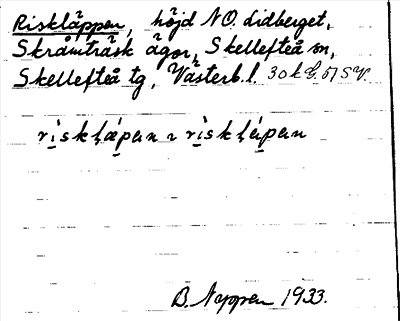 Riskläppen, höjd NO. Lidberget,
Skråmträsk ägor, Skellefteå sn,
Skellefteå tg, Västerb. l. 30 k
riskḷæ´pan ᴐ riskḷápan
B. Nyppen 1933.